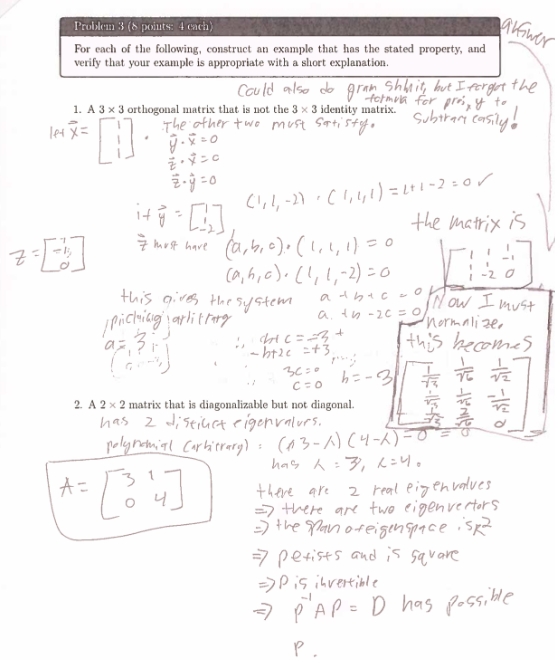 Problem 3 (8 points: 4 each)
answer
For each of the following, construct an example that has the stated property, and
verify that your example is appropriate with a short explanation.
Could also do gram Shhit, but I forgot the
formula for proj, y to
subtract easily!
1. A 3 × 3 orthogonal matrix that is not the 3 × 3 identity matrix.
let x⃗ = [1 1 1]. The other two must satisfy.
y⃗·x⃗=0
z⃗·x⃗=0
z⃗·y⃗=0
(1,1,-2)·(1,1,1)=1+1-2=0 ✓
if y⃗ = [1 1 -2]
the matrix is
z⃗ must have (a,b,c)·(1,1,1)=0
(a,b,c)·(1,1,-2)=0
z = [1 -1 0]
[1 1 1
1 1 -1
1 -2 0]
this gives the system a+b+c=0
a+b-2c=0
picking arbitrary
a=3
∴ b+c=-3
-b+2c=+3
3c=0
c=0 b=-3
Now I must
normalize.
this becomes
[1/√3 1/√6 1/√2
1/√3 1/√6 -1/√2
1/√3 2/√6 0]
2. A 2 × 2 matrix that is diagonalizable but not diagonal.
has 2 distinct eigenvalues.
polynomial (arbitrary): (3-λ)(4-λ)=0
has λ=3, λ=4.
A = [3 1
0 4]
there are 2 real eigenvalues
⇒ there are two eigenvectors
⇒ the span of eigenspace is R²
⇒ P exists and is square
⇒ P is invertible
⇒ P⁻¹AP = D has possible
P.